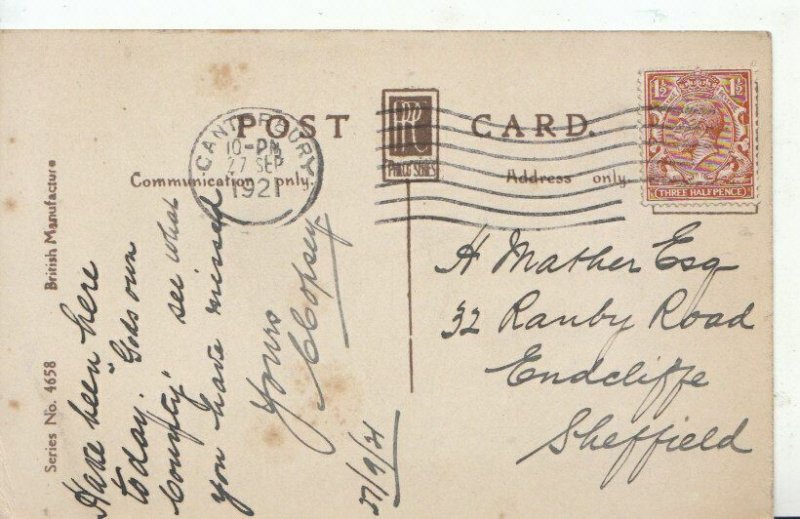 POST CARD.
PHOTO SERIES
Communication only.
Address only.
CANTERBURY
10-PM
27 SEP
1921
1½ 1½
THREE HALFPENCE
Series No. 4658 British Manufacture
Have been here
today. "Gods own
County," see what
you have missed
Yours
Copsey
27/9/21
H Mather Esq
32 Ranby Road
Endcliffe
Sheffield